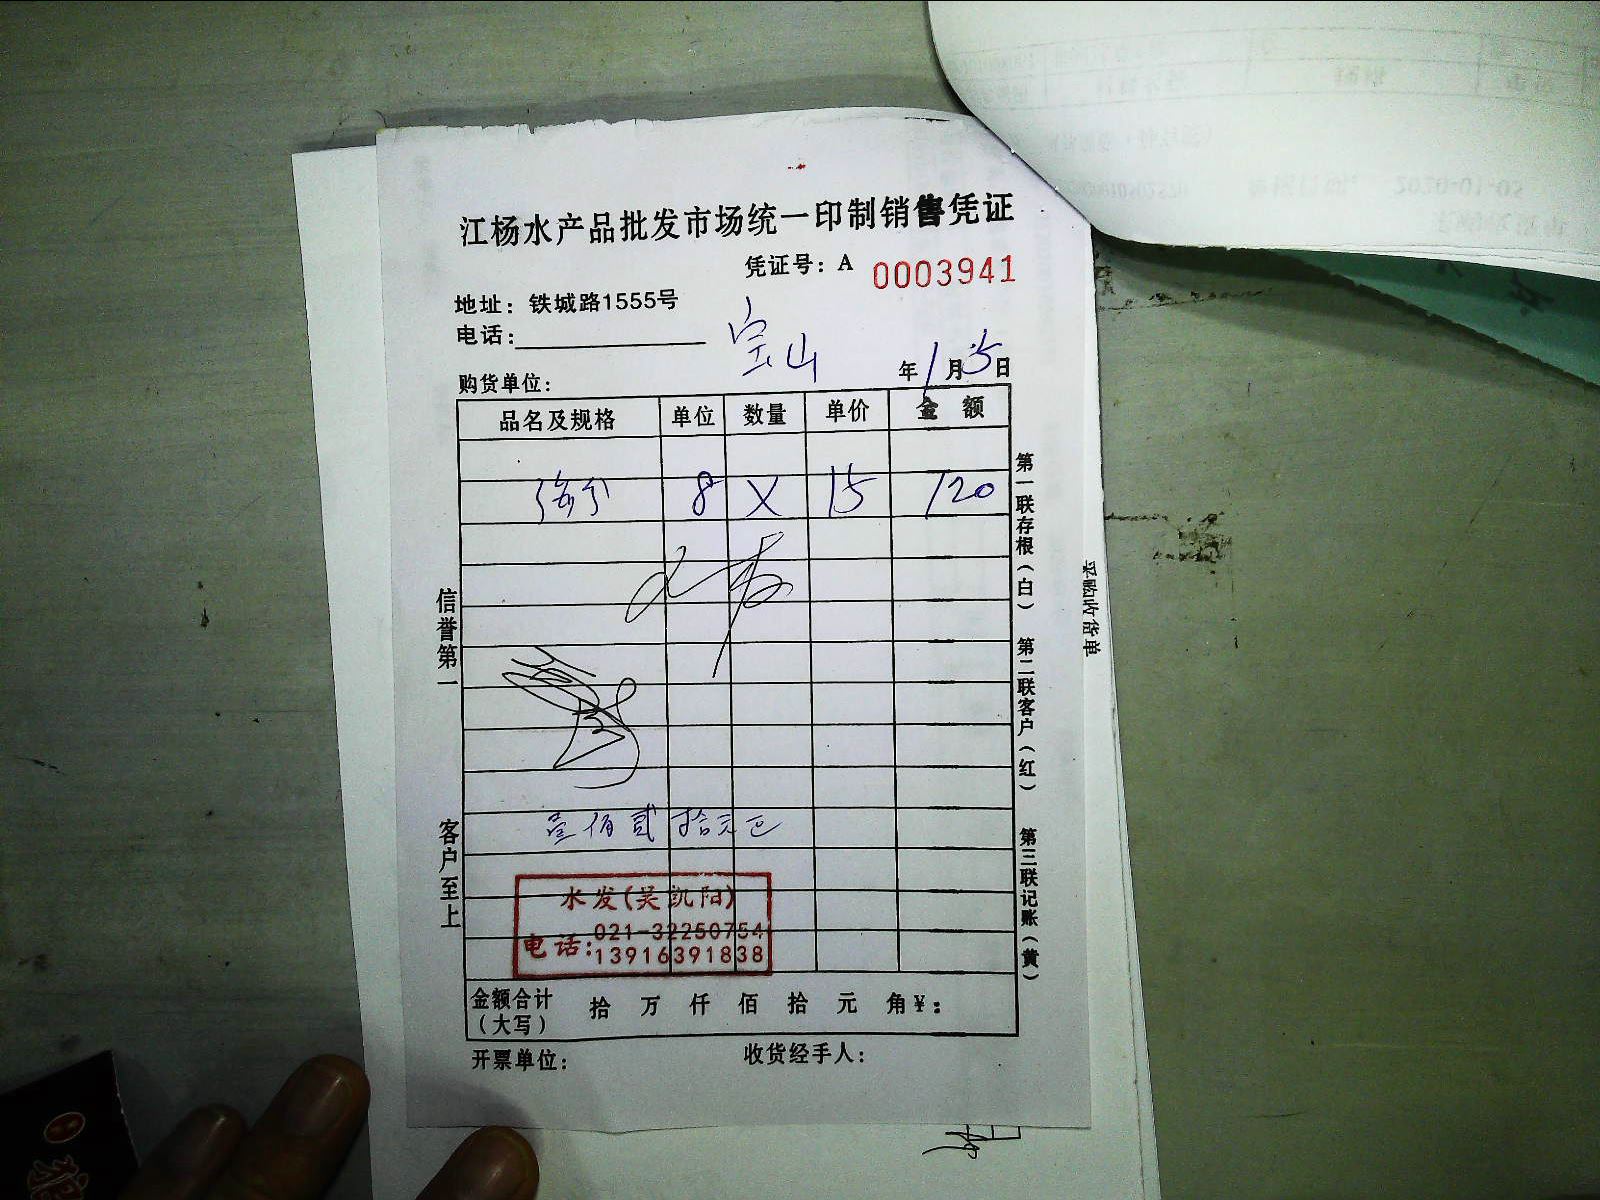 江杨水产品批发市场统一印制销售凭证
凭证号：A 0003941
地址：铁城路1555号
电话：
宝山
年1月5日
购货单位：
品名及规格 单位 数量 单价 金额
8 X 15 120
壹佰贰拾元正
水发(吴凯阳)
电话：021-32250754
13916391838
金额合计（大写） 拾 万 仟 佰 拾 元 角¥：
开票单位： 收货经手人：
信誉第一 客户至上
第一联存根（白） 第二联客户（红） 第三联记账（黄）
采购收货单